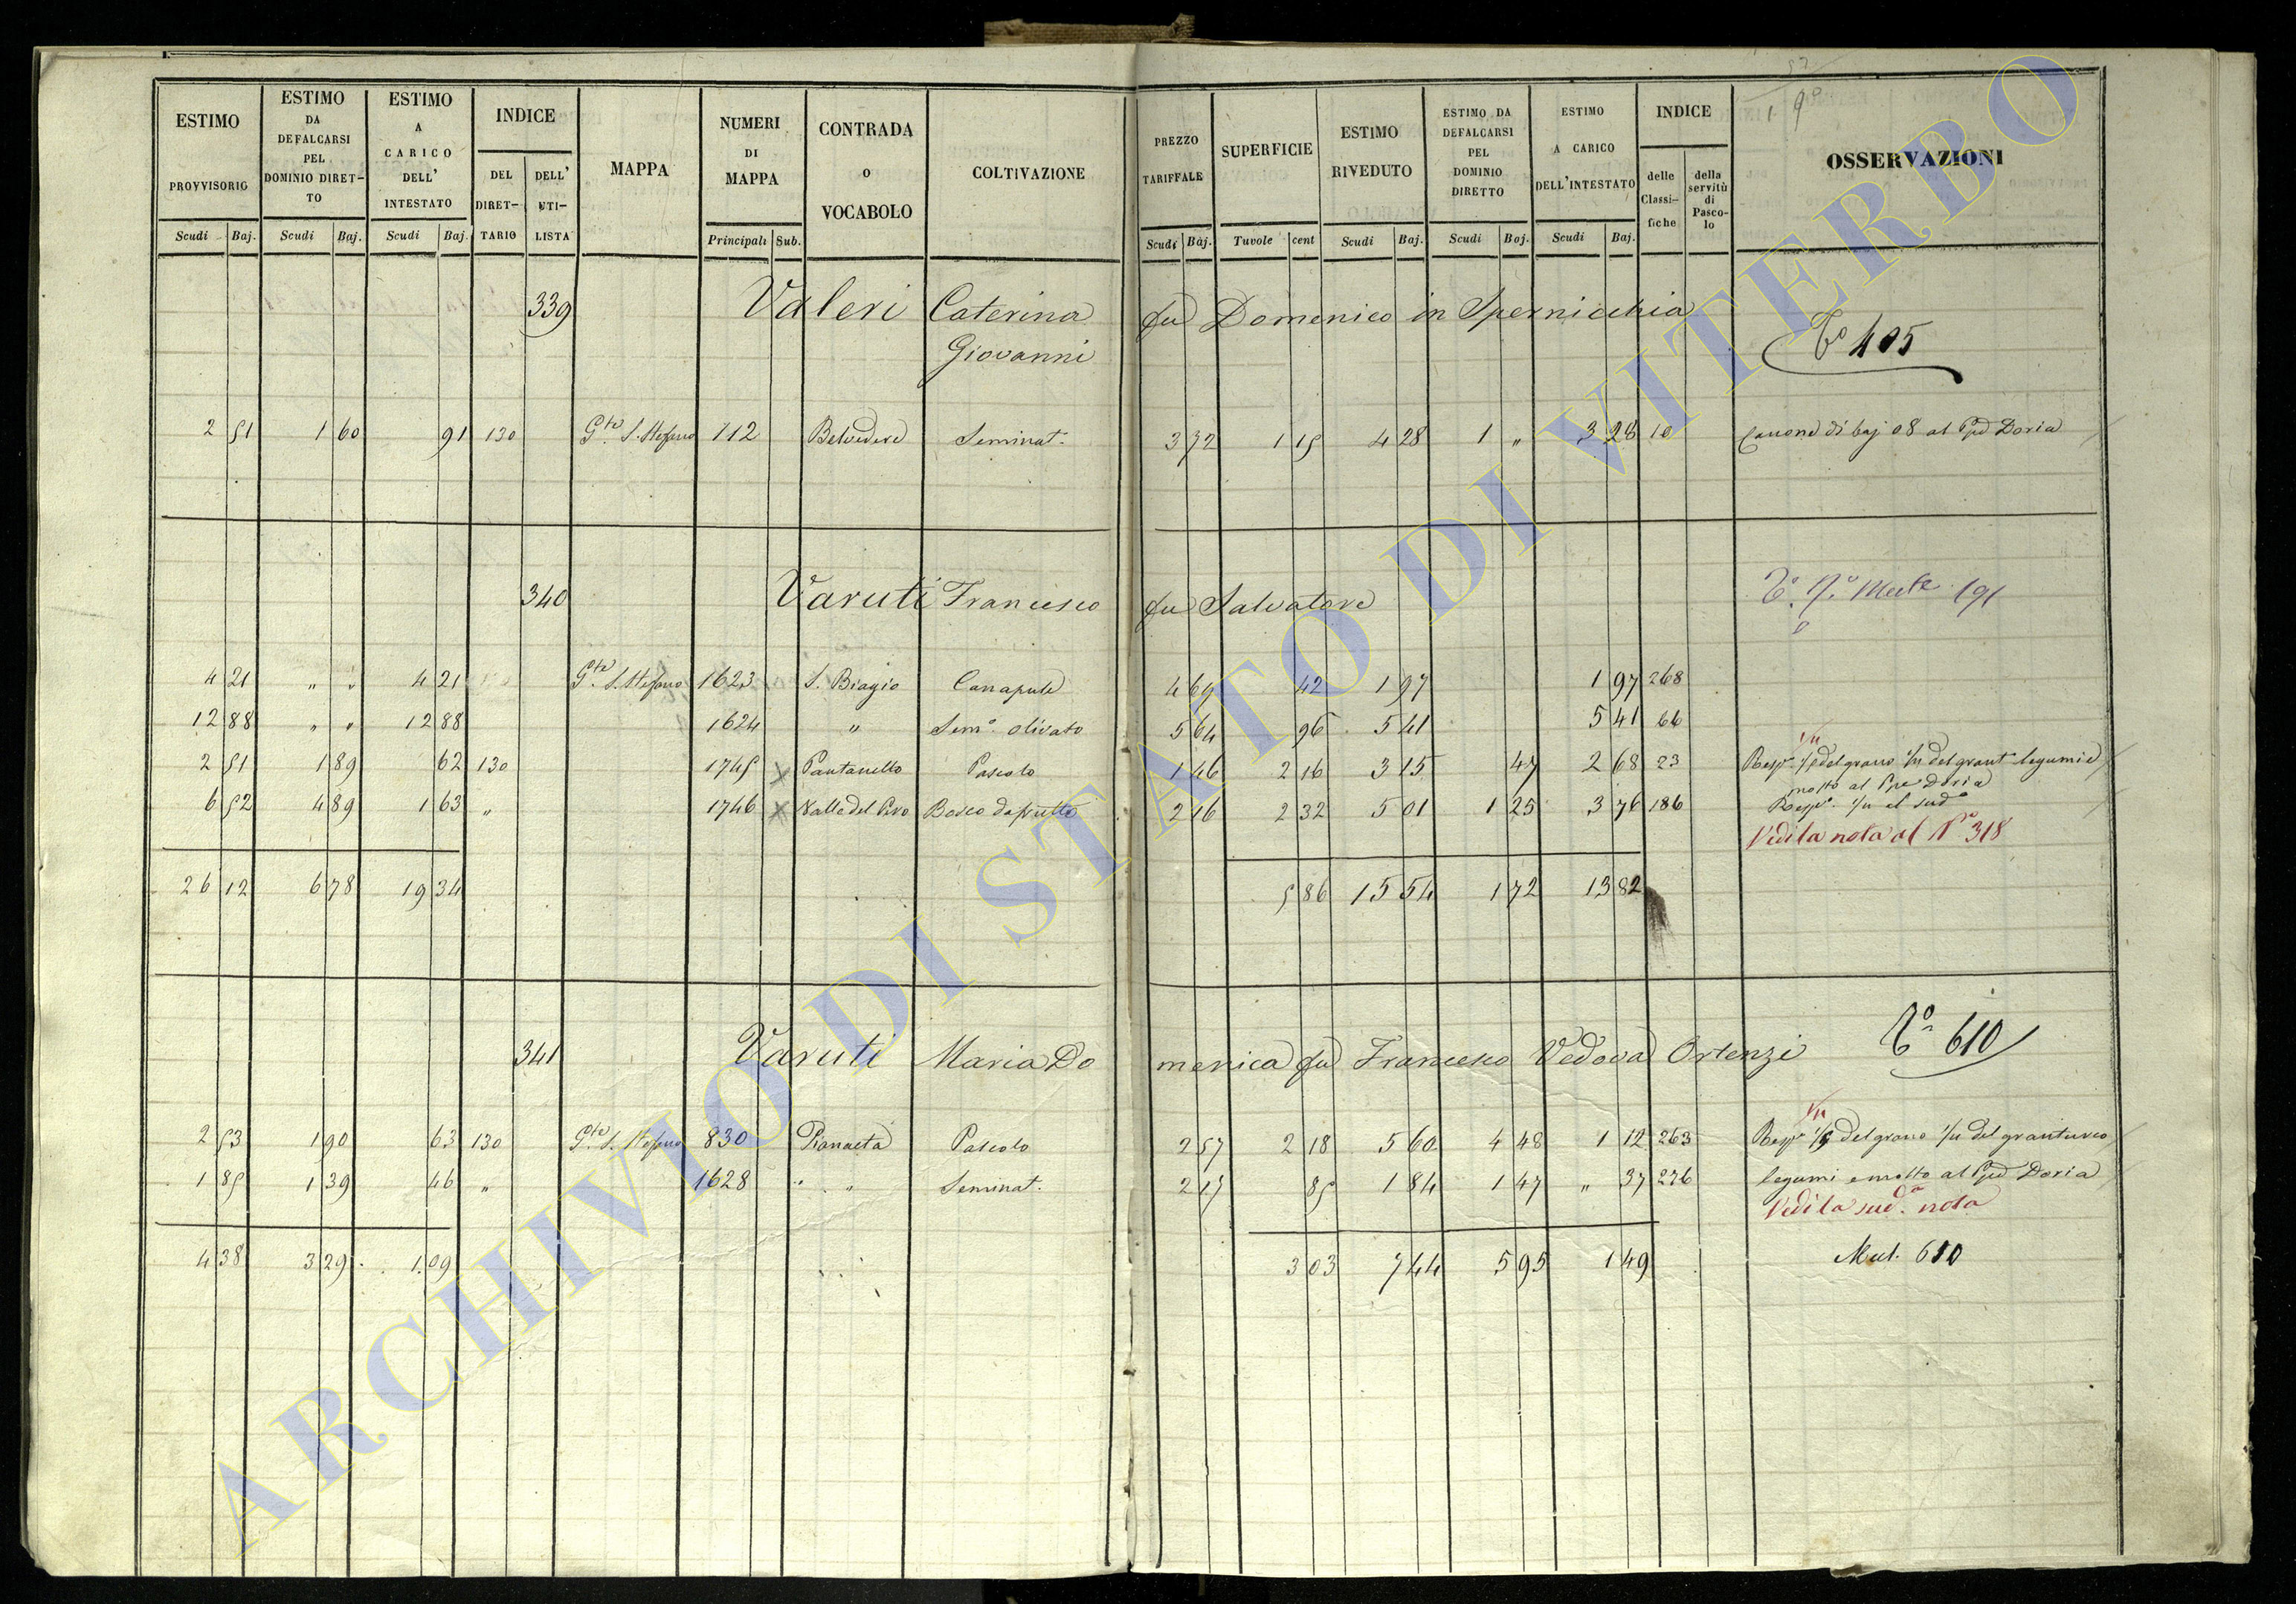 ESTIMO PROVVISORIO Scudi Baj.
ESTIMO DA DEFALCARSI PEL DOMINIO DIRETTO Scudi Baj.
ESTIMO A CARICO DELL' INTESTATO Scudi Baj.
INDICE DEL DIRETTARIO DELL' UTILISTA
MAPPA
NUMERI DI MAPPA Principali Sub.
CONTRADA O VOCABOLO
COLTIVAZIONE
PREZZO TARIFFALE Scudi Baj.
SUPERFICIE Tavole cent
ESTIMO RIVEDUTO Scudi Baj.
ESTIMO DA DEFALCARSI PEL DOMINIO DIRETTO Scudi Baj.
ESTIMO A CARICO DELL'INTESTATO Scudi Baj.
INDICE delle Classifiche della servitù di Pascolo
OSSERVAZIONI
339 Valeri Caterina fu Domenico in Spernicchia
Giovanni
To 405
2 51 1 60 91 130 Gtto S. Stefano 112 Belvedere Seminat. 3 72 1 15 4 28 1 " 3 28 10 Canone di baj 08 al Ppe Doria
340 Varuti Francesco fu Salvatore
191
4 21 " " 4 21 Gtto S. Stefano 1623 S. Biagio Canapule 4 69 42 1 97 1 97 268
12 88 " " 12 88 1624 " Semo olivato 5 64 96 5 41 5 41 66
2 51 1 89 62 130 1745 Pantanello Pascolo 1 46 2 16 3 15 47 2 68 23 Rispa del grano del grant legumi e
mosto al Ppe Doria
6 52 4 89 1 63 " 1746 Valle del Pero Bosco da frutto 2 16 2 32 5 01 1 25 3 76 186 Rispa al sudo
Vedi la nota al No 318
26 12 6 78 19 34 5 86 15 54 1 72 13 82
341 Varuti Maria Domenica fu Francesco Vedova Ortenzi
To 610
2 53 1 90 63 130 Gtto S. Stefano 830 Pianaeta Pascolo 2 57 2 18 5 60 4 48 1 12 263 Rispa 1/5 del grano del granturco
1 85 1 39 46 " 1628 " " Seminat. 2 17 85 1 84 1 47 " 37 276 legumi e mosto al Ppe Doria
Vedi la suda nota
4 38 3 29 1 09 3 03 7 44 5 95 1 49 Mut. 610
ARCHIVIO DI STATO DI VITERBO